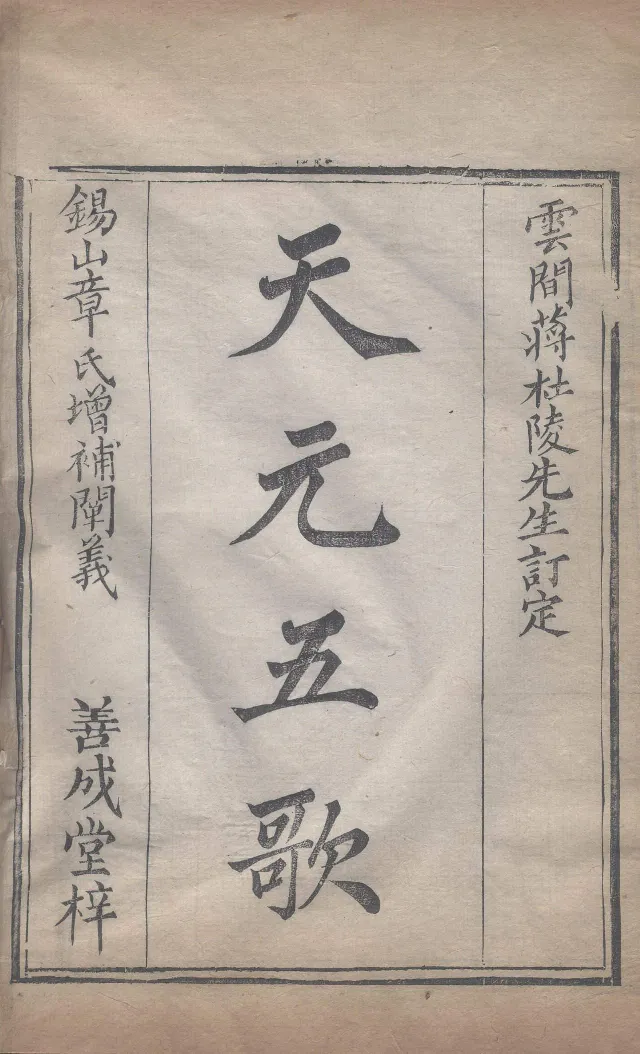 雲間蔣杜陵先生訂定
天元五歌
錫山章氏增補闡義
善成堂梓